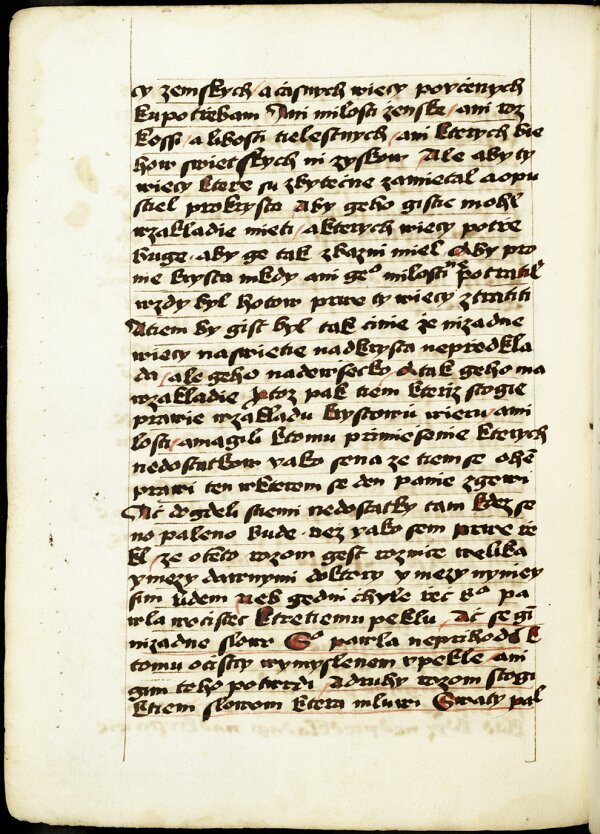 cy zemskych a cisnych wiecy powcenych
ku potrebam Ani milosti zenske ani roz
kossi a libosti tielestnych ani kterych bie
how swietskych ni zyskow Ale aby ty
wiecy ktere su zbytecne zamietal a opu
stiel pro krysta Aby geho gistie mohl
wzakladie mieti a kterych wiecy potře
buge aby ge tak zkazni miel Aby pro
nie krysta nikdy ani geº milosti nepotratil
wzdy byl hotow prwe ty wiecy ztratiti
A tiem by gist byl tak cinie že nizadne
wiecy na swietie nad krysta nepredkla
da ale geho nadewsecko A tak geho ma
wzakladie Protoz pak tiem kteriz stogie
prawie wzakladu krystowu wieru ami
losti a magili ktomu primiesenie kterych
nedostatkow yako sena ze tiem se ohē
prawi ten wkterem se den panie zgewi
Ač dogdeli stiemi nedostatky tam kdez se
no paleno bude nez yako sem prwe re
kl ze o teto rozom gest roznice welika
y mezy dawnymi doktory y mezy nyniey
sim lidem Neb gedni chyle rec Sº pa
wla wocistec k tretiemu peklu Ač se gī
nizadne slowo Sº pawla neprihodi k
tomu ocistcy wymyslenem v pekle ani
gim toho potwrdi A druhy rozom stogi
k tiem slowom ktera mluwi Swaty pal